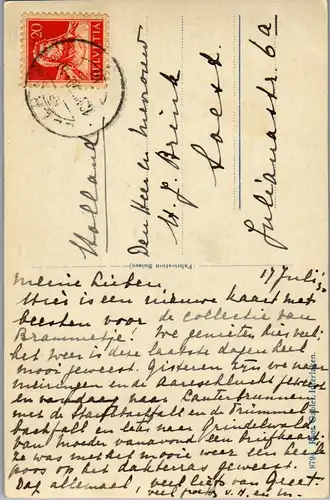 20
HELVETIA
Den Heer en Mevrouw
H. J. Brink
Soest
Julianastr. 6a
Holland
(Fabrication Suisse)
17 Juli
Meine Lieben,
Hier is een nieuwe kaart met
beesten voor de collectie van
Brammetje! We genieten hier veel;
het weer is deze laatste dagen heel
mooi geweest. Gisteren zijn we naar
Meiringen en de Aareschlucht geweest
en vandaag naar Lauterbrunnen
met de Staubbachfall en de Trümmel-
bachfall en later naar Grindelwald.
van moeder vanavond een briefkaart;
ze was met het mooie weer een heele
poos op het dakterras geweest.
Dag allemaal, veel liefs van Greet.
veel groeten H. en M.